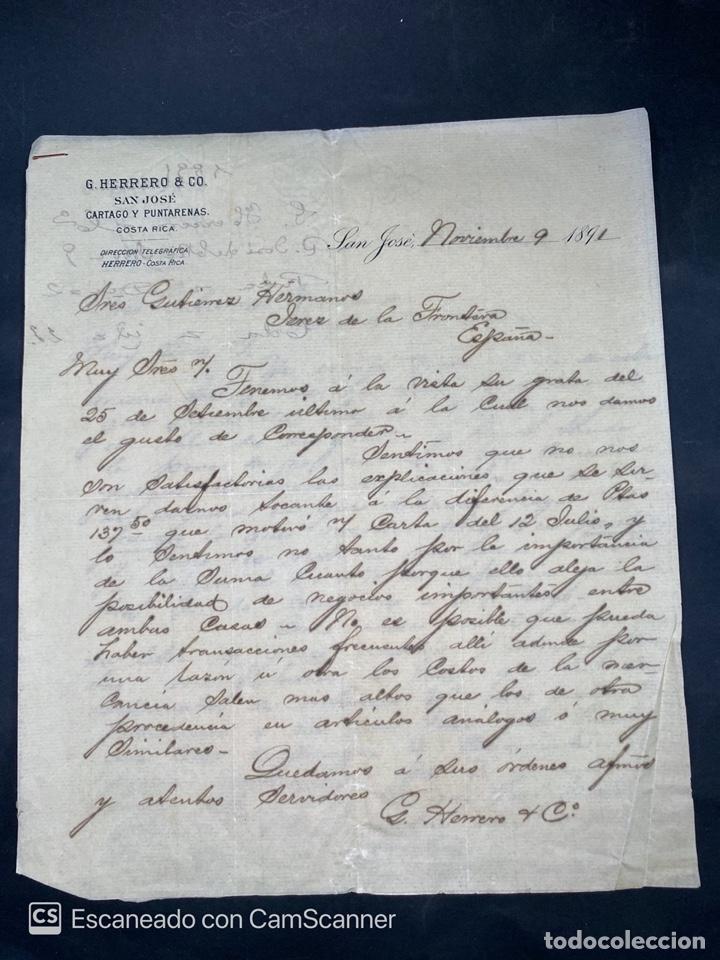 G. HERRERO & CO.
SAN JOSÉ
CARTAGO Y PUNTARENAS.
COSTA RICA.
DIRECCION TELEGRÁFICA
HERRERO - COSTA RICA
San José, Noviembre 9 1891
Sres Gutiérrez Hermanos
Jerez de la Frontera
España-
Muy Sres n/.
Tenemos á la vista su grata del
25 de Setiembre último á la cual nos damos
el gusto de corresponder-
Sentimos que no nos
son satisfactorias las explicaciones que se sir-
ven darnos tocante á la diferencia de Ptas
137 50 que motivó n/ carta del 12 Julio, y
lo sentimos no tanto por la importancia
de la suma cuanto porque ello aleja la
posibilidad de negocios importantes entre
ambas casas- No es posible que pueda
haber transacciones frecuentes allí adonde por
una razón ú otra los costos de la mer-
cancía salen mas altos que los de otra
procedencia en artículos análogos ó muy
similares-
Quedamos á sus órdenes afmos
y atentos servidores
G. Herrero & Co.
CS Escaneado con CamScanner
todocoleccion